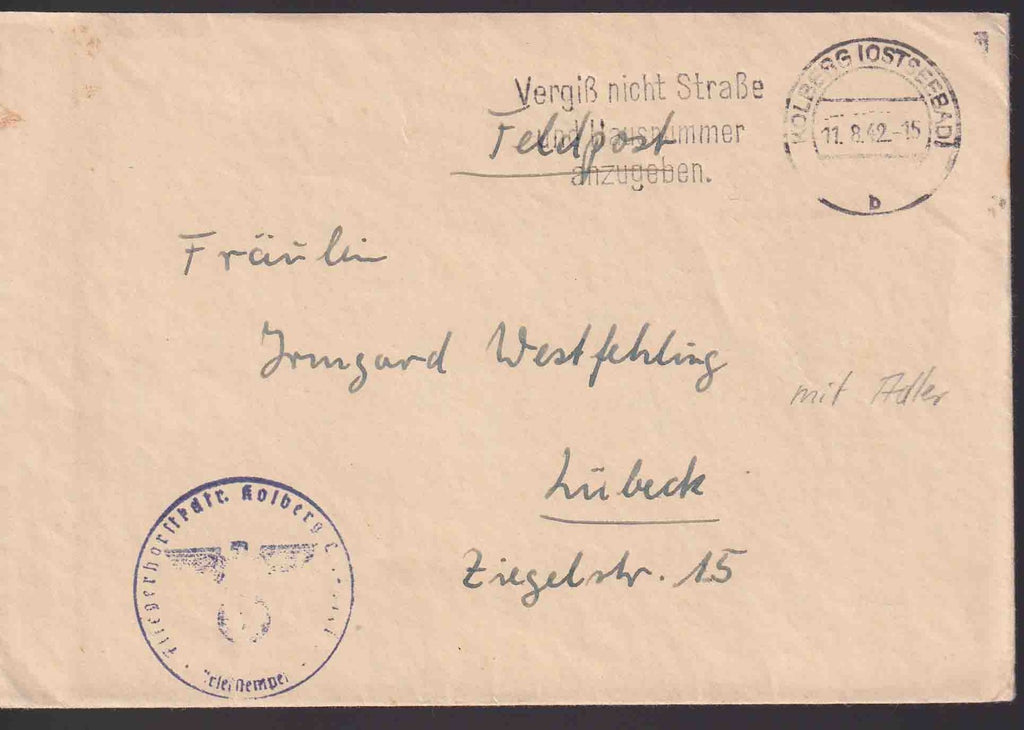 Vergiß nicht Straße
und Hausnummer
anzugeben.
KOLBERG (OSTSEEBAD)
11.8.42.-15
b
Feldpost
Fräulin
Irmgard Westfehling
mit Adler
Lübeck
Ziegelstr. 15
Fliegerhorstkdtr. Kolberg
Briefstempel